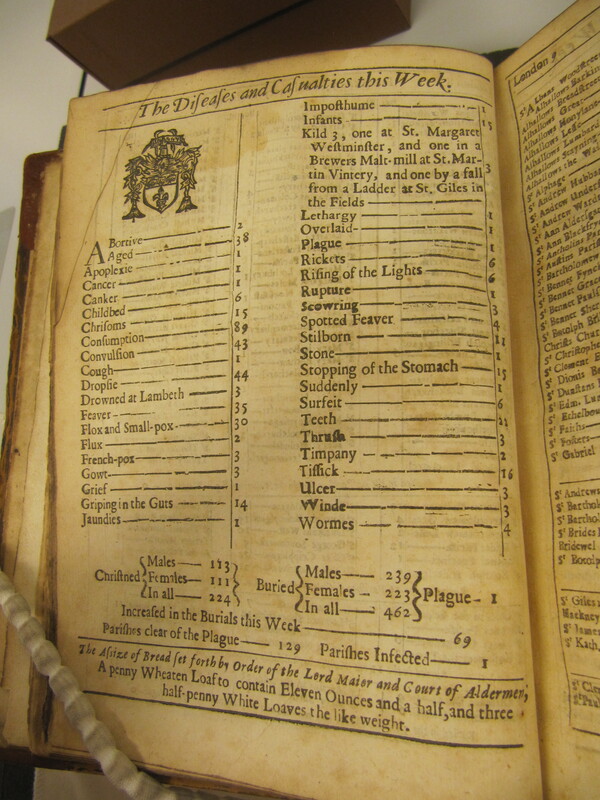 The Diſeaſes and Caſualties this Week.
Abortive 2
Aged 38
Apoplexie 1
Cancer 1
Canker 1
Childbed 6
Chriſoms 15
Conſumption 89
Convulſion 43
Cough 1
Dropſie 44
Drowned at Lambeth 3
Feaver 35
Flox and Small-pox 30
Flux 2
French-pox 3
Gowt 3
Grief 1
Griping in the Guts 14
Jaundies 1
Impoſthume 1
Infants 15
Kild 3, one at St. Margaret
Weſtminſter, and one in a
Brewers Malt-mill at St. Mar-
tin Vintery, and one by a fall 3
from a Ladder at St. Giles in
the Fields
Lethargy 1
Overlaid 1
Plague 1
Rickets 6
Riſing of the Lights 6
Rupture 1
Scowring 3
Spotted Feaver 4
Stilborn 11
Stone 1
Stopping of the Stomach 15
Suddenly 1
Surfeit 6
Teeth
Thruſh 3
Timpany 2
Tiſſick 16
Ulcer 3
Winde 3
Wormes 4
Chriſtned { Males 113
Females 111
In all 224
Buried { Males 239
Females 223
In all 462 } Plague 1
Increaſed in the Burials this Week 69
Pariſhes clear of the Plague 129 Pariſhes Infected 1
The Aſſize of Bread ſet forth by Order of the Lord Maior and Court of Aldermen;
A penny Wheaten Loaf to contain Eleven Ounces and a half, and three
half-penny White Loaves the like weight.
London
Woodſtreet
Alhallows Barkin
Alhallows Breadſtre
Alhallows Great
Alhallows Honylane
Alhallows Leſſ
Alhallows Lumbard
Alhallows the Wa
St Alphage
St Andrew Hubbar
St Andrew Underſ
St Andrew Ward
St Ann Alderſg
St Ann Blackfry
St Antholins Par
St Auſtins Pariſ
St Bartholomew
St Bennet Fynch
St Bennet Grac
St Bennet Paul
St Bennet Sher
St Botolph Bil
Chriſts Chur
St Chriſtophe
St Clement E
St Dionis Ba
St Dunſtans E
St Edm. Lum
St Ethelbow
St Faiths
St Foſters
St Gabriel
St Andrews
St Barthol
St Bartho
St Brides
Bridewel
St Botolp
St Giles
Hackney
St James
St Kath.